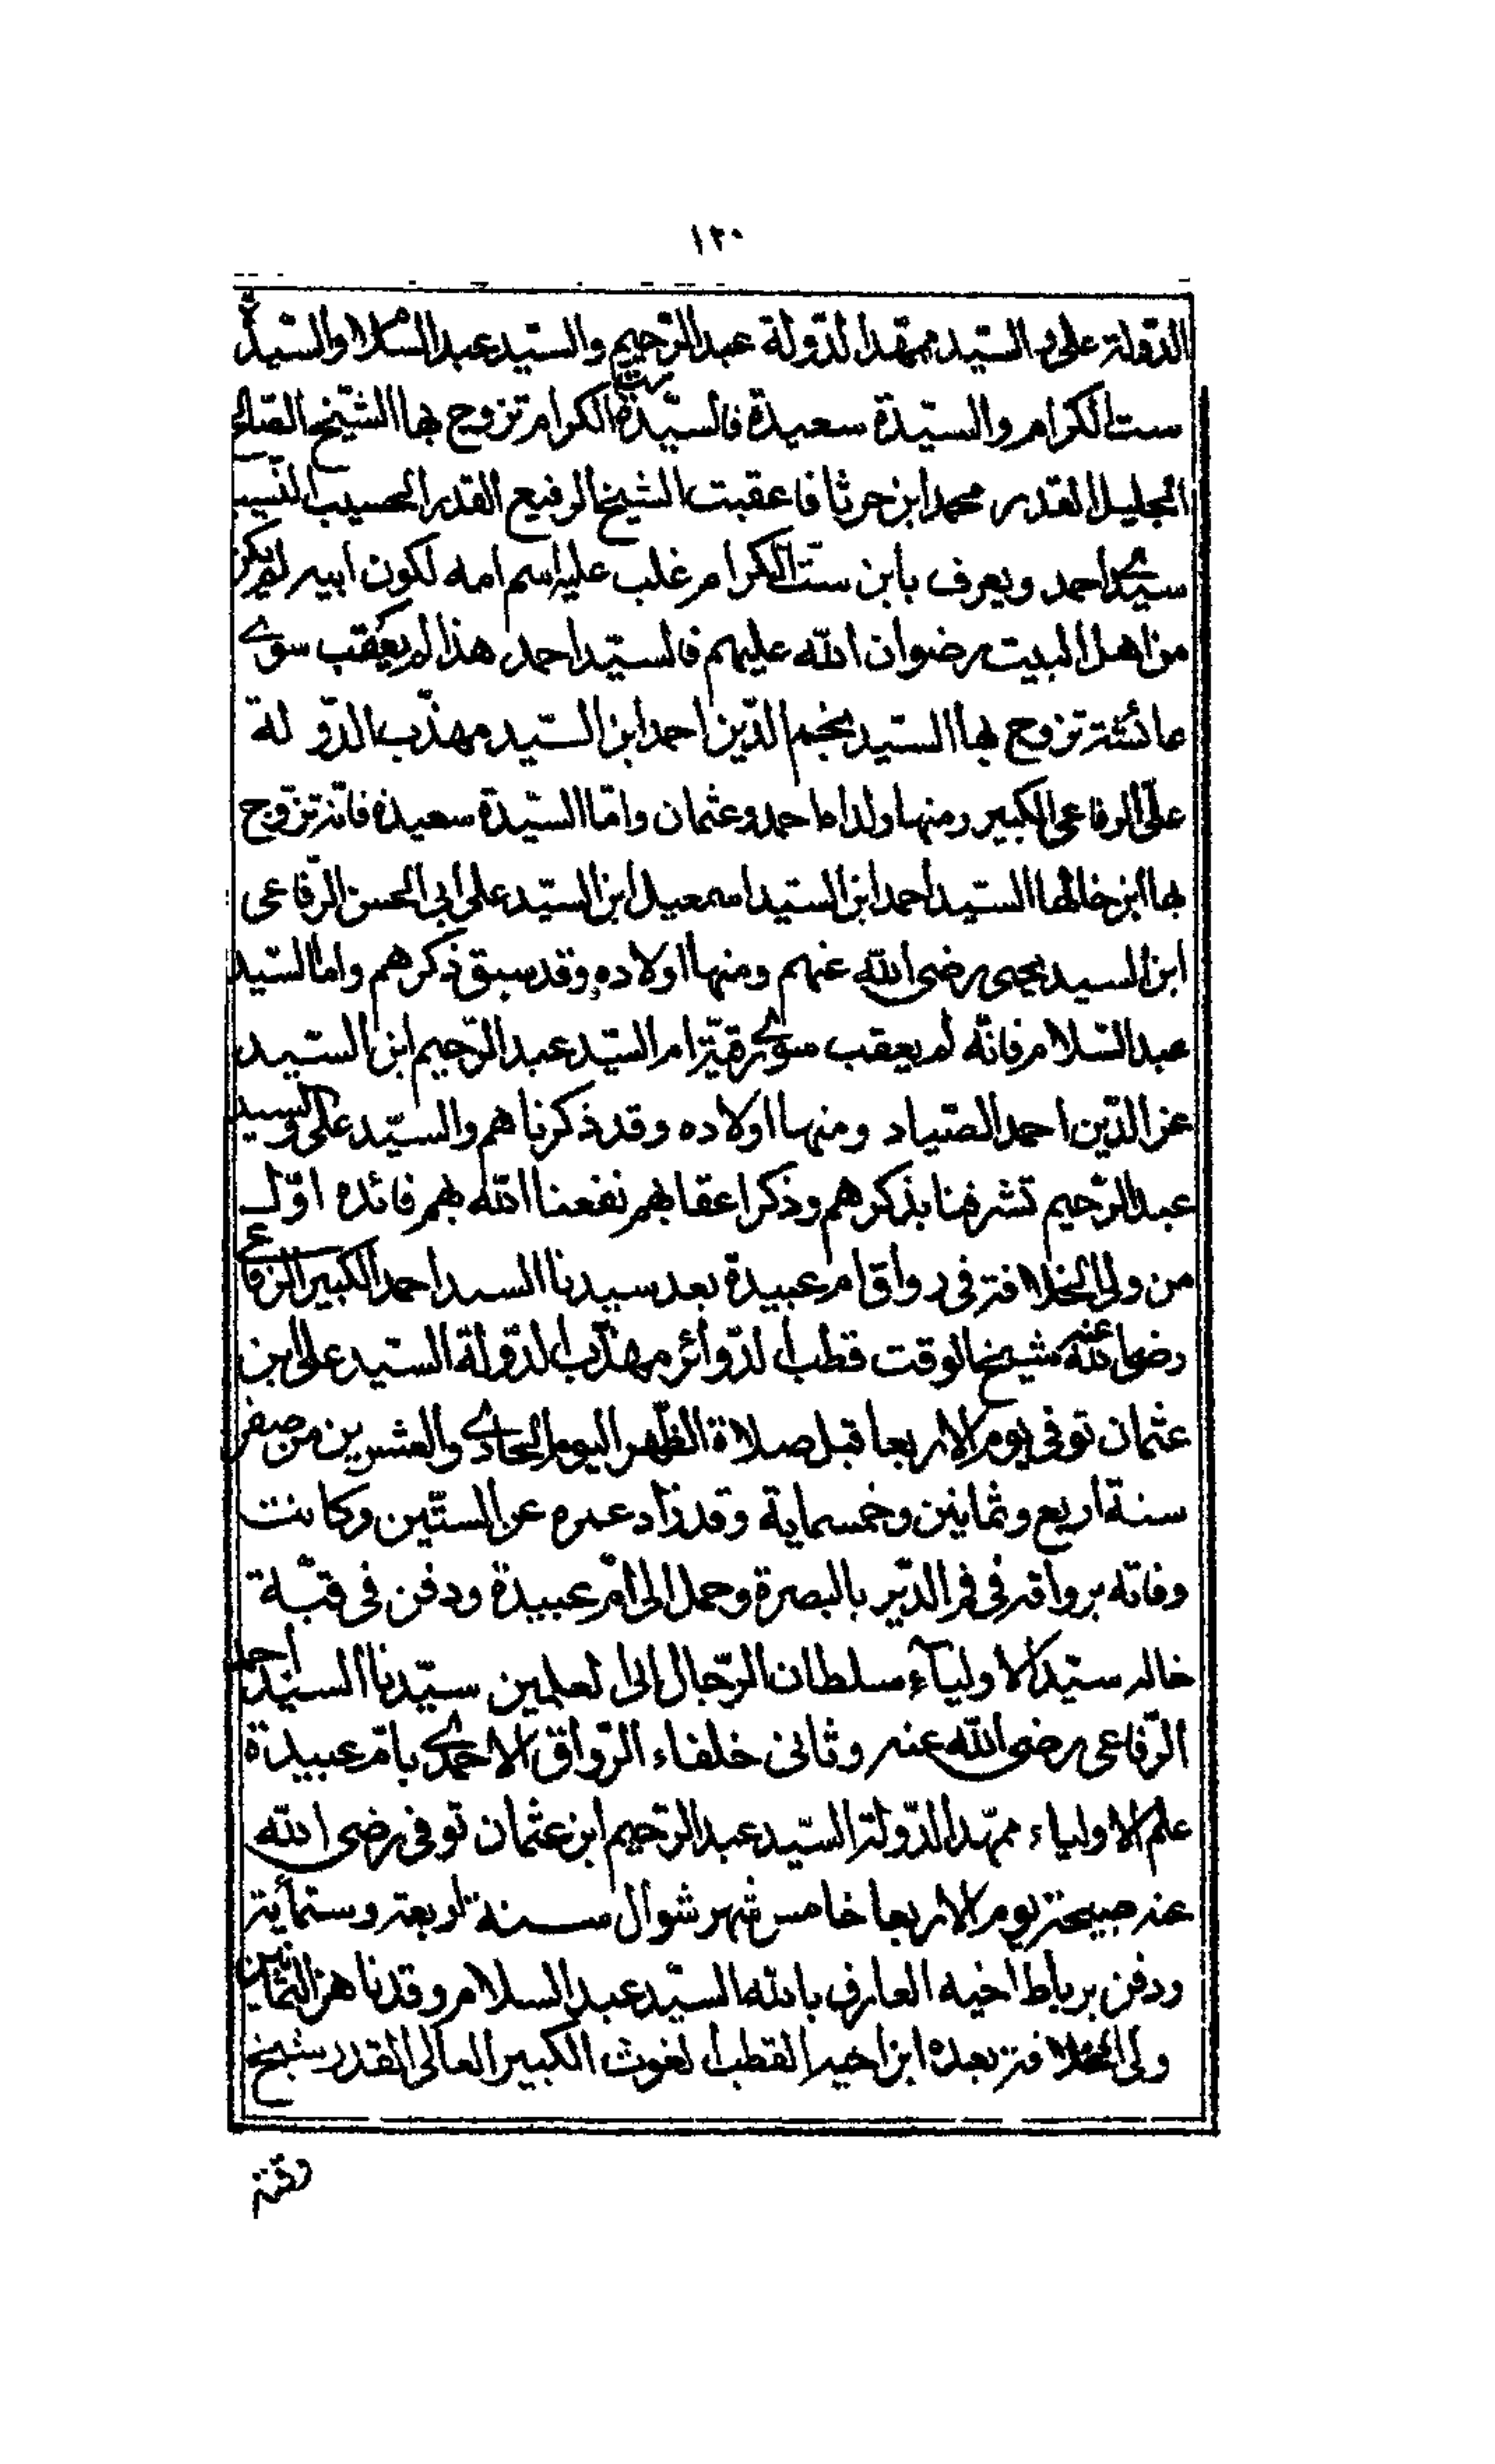 ١٢٠
الدّولة على والسّيد ممهّد الدّولة عبد الرّحيم والسّيد عبد السّلام والسّيدة
ست الكرام والسّيّدة سعيدة فالسّيّدة ست الكرام تزوج بها الشّيخ الصّالح
الجليل القدر محمد ابن حرثا فاعقبت الشيخ الرفيع القدر الحسيب النّسيب
سيّدى احمد ويعرف بابن ستّ الكرام غلب عليه اسم امه لكون ابيه لم يكن
من اهل البيت رضوان الله عليهم فالسيّد احمد هذا لم يعقب سوى
عائشة تزوج بها السّيد نجم الدّين احمد ابن السّيد مهذّب الدّولة
علىّ الرفاعى الكبير ومنها ولداه احمد وعثمان وامّا السّيّدة سعيدة فانّه تزوّج
بها ابن خالها السّيد احمد ابن السّيد اسمعيل ابن السّيّد على ابى الحسن الرّفاعى
ابن السيد يحيى رضى الله عنهم ومنها اولاده وقد سبق ذكرهم واما السّيد
عبد السّلام فانّه لم يعقب سوى رقيّة ام السّيّد عبد الرّحيم ابن السّيد
عز الدّين احمد الصّياد ومنها اولاده وقد ذكرناهم والسيّد على والسيد
عبد الرّحيم تشرفنا بذكرهم وذكر اعقابهم نفعنا الله بهم فائده اوّل
من ولى الخلافة فى رواق ام عبيدة بعد سيدنا السيد احمد الكبير الرفاعى
رضى الله عنه شيخ الوقت قطب الدّوائر مهذّب الدّولة السّيد على ابن
عثمان توفى يوم الاربعا قبل صلاة الظّهر اليوم الحادى والعشرين من صفر
سنة اربع وثمانين وخمسماية وقد زاد عمره عن السّتّين وكانت
وفاته برواقه فى فم الدّير بالبصرة وحمل الى امّ عبيدة ودفن فى قبّة
خاله سيّد الاوليآء سلطان الرّجال ابى العلمين سيّدنا السيّد احمد
الرّفاعى رضى الله عنه وثانى خلفاء الرّواق الاحمدى بامّ عبيدة
علم الاولياء ممهّد الدّولة السّيّد عبد الرّحيم ابن عثمان توفى رضى الله
عنه صبيحة يوم الاربعا خامس شهر شوال سنة اربعة وستمأية
ودفن برباط اخيه العارف بالله السيّد عبد السلام وقد ناهز الثمانين
ولى الخلافة بعده ابن اخيه القطب الغوث الكبير العالى القدر شيخ